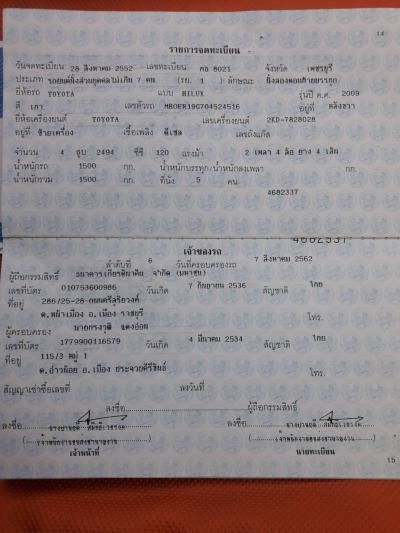 14
รายการจดทะเบียน
วันจดทะเบียน 28 สิงหาคม 2552 เลขทะเบียน 8021 จังหวัด เพชรบุรี
ประเภท รถยนต์นั่งส่วนบุคคลไม่เกิน 7 คน (รย. 1) ลักษณะ นั่งสองตอนท้ายบรรทุก
ยี่ห้อรถ TOYOTA แบบ HILUX รุ่นปี ค.ศ. 2009
สี เทา เลขตัวรถ MR0ER19G704524516 อยู่ที่ คลังขวา
ยี่ห้อเครื่องยนต์ TOYOTA เลขเครื่องยนต์ 2KD-7828028
อยู่ที่ ซ้ายเครื่อง เชื้อเพลิง ดีเซล เลขถังแก๊ส
จำนวน 4 สูบ 2494 ซีซี 120 แรงม้า 2 เพลา 4 ล้อ ยาง 4 เส้น
น้ำหนักรถ 1500 กก. น้ำหนักบรรทุก/น้ำหนักลงเพลา กก.
น้ำหนักรวม 1500 กก. ที่นั่ง 5 คน
4682337
4682337
เจ้าของรถ
ลำดับที่ 6 วันที่ครอบครองรถ 7 สิงหาคม 2562
ผู้ถือกรรมสิทธิ์ ธนาคารเกียรตินาคิน จำกัด (มหาชน)
เลขที่บัตร 0107536000986 วันเกิด 7 กันยายน 2536 สัญชาติ ไทย
ที่อยู่ 286/25-28 ถนนศรีสุริยวงศ์
ต.หน้าเมือง อ.เมือง ราชบุรี โทร.
ผู้ครอบครอง
เลขที่บัตร 1779900116579 วันเกิด 4 มีนาคม 2534 สัญชาติ ไทย
ที่อยู่ 115/3 หมู่ 1
ต.อ่าวน้อย อ.เมือง ประจวบคีรีขันธ์ โทร.
สัญญาเช่าซื้อเลขที่ ลงวันที่
ลงชื่อ ผู้ถือกรรมสิทธิ์
ลงชื่อ ลงชื่อ
(เจ้าพนักงานขนส่งชำนาญงาน) (เจ้าพนักงานขนส่งชำนาญงาน)
เจ้าหน้าที่ นายทะเบียน
15